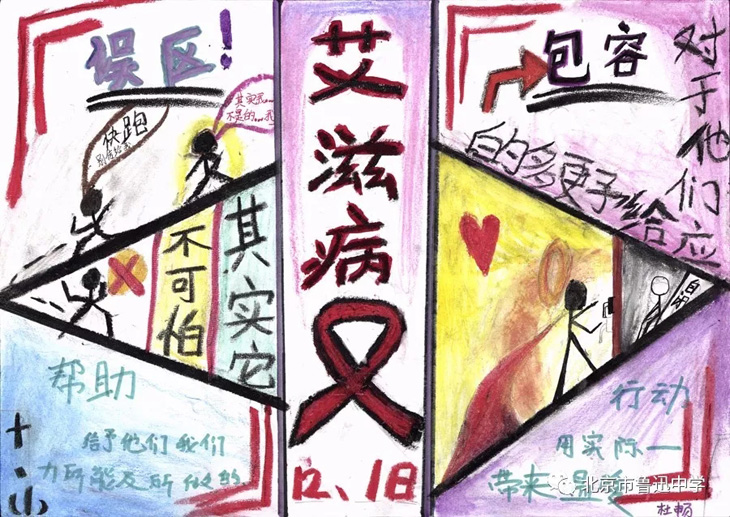 误区!
快跑
其实我…
不是的…我
不可怕
其实它
帮助
给予他们我们
力所能及所做的
艾滋病
12、1日
包容
对于他们应
给予更多的
行动
用实际一
带来
北京市鲁迅中学
杜畅